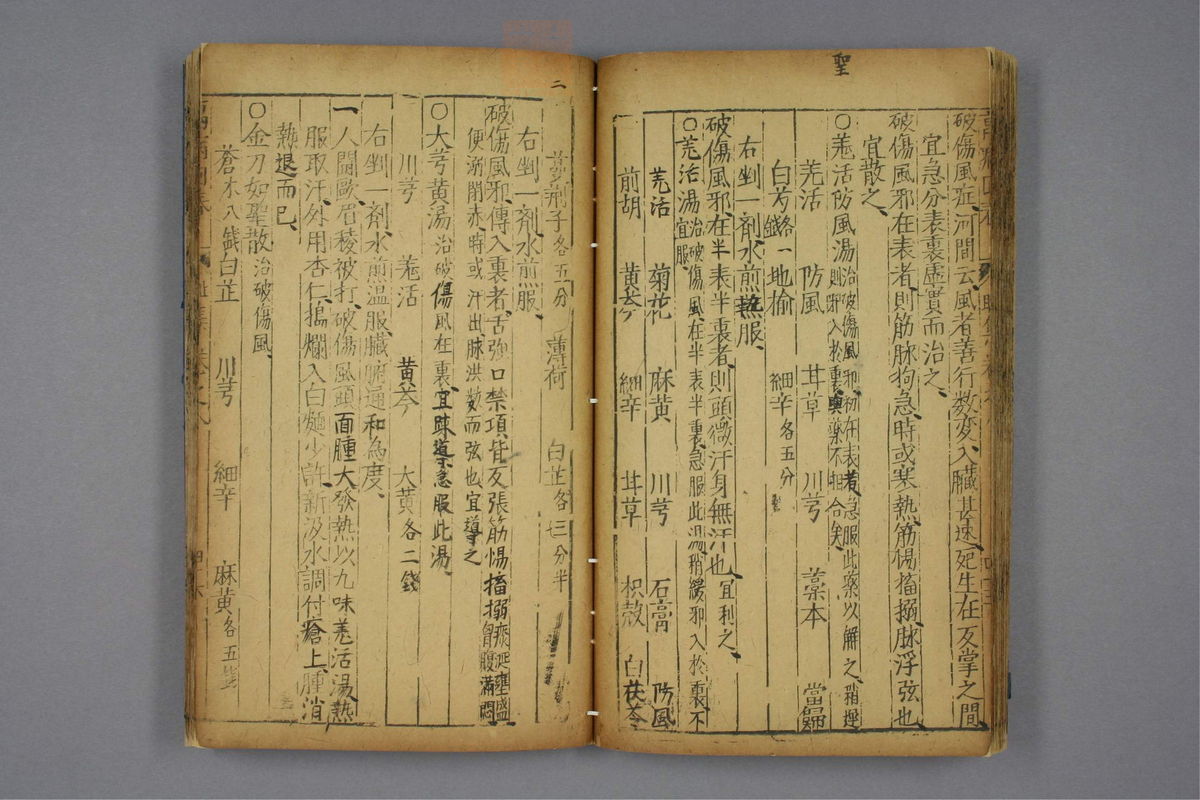 聖
破傷風症河間云風者善行数変入臟甚速死生在反掌之間
宜急分表裏虛實而治之
破傷風邪在表者則筋脉拘急時或寒熱筋惕搐搦脉浮弦也
宜散之
○羌活防風湯治破傷風邪初在表者急服此藥以解之稍遲則邪入於裏與藥不相合矣
羌活 防風 甘草 川芎 藁本 當歸
白芍各一錢 地榆 細辛各五分
右剉一劑水煎熱服
破傷風邪在半表半裏者則頭微汗身無汗也宜利之
○羌活湯治破傷風在半表半裏急服此湯稍緩邪入於裏不宜服
羌活 菊花 麻黄 川芎 石膏 防風
前胡 黄芩 細辛 甘草 枳殼 白茯苓
二
蔓荊子各五分 薄荷 白芷各二分半
右剉一劑水煎服
破傷風邪傳入裏者舌強口禁項背反張筋惕搐搦痰延壅盛胷腹滿悶
便溺閉赤時或汗出脉洪数而弦也宜導之
○大芎黄湯治破傷風在裏宜疎導急服此湯
川芎 羌活 黄芩 大黄各二錢
右剉一剤水煎温服臟腑通和為度
一人鬪毆眉稜被打破傷風頭面腫大發熱以九味羗活湯熱
服取汗外用杏仁搗爛入白麵少許新汲水調付瘡上腫消
熱退而已
○金刀如聖散治破傷風
蒼朮八錢 白芷 川芎 細辛 麻黄各五錢